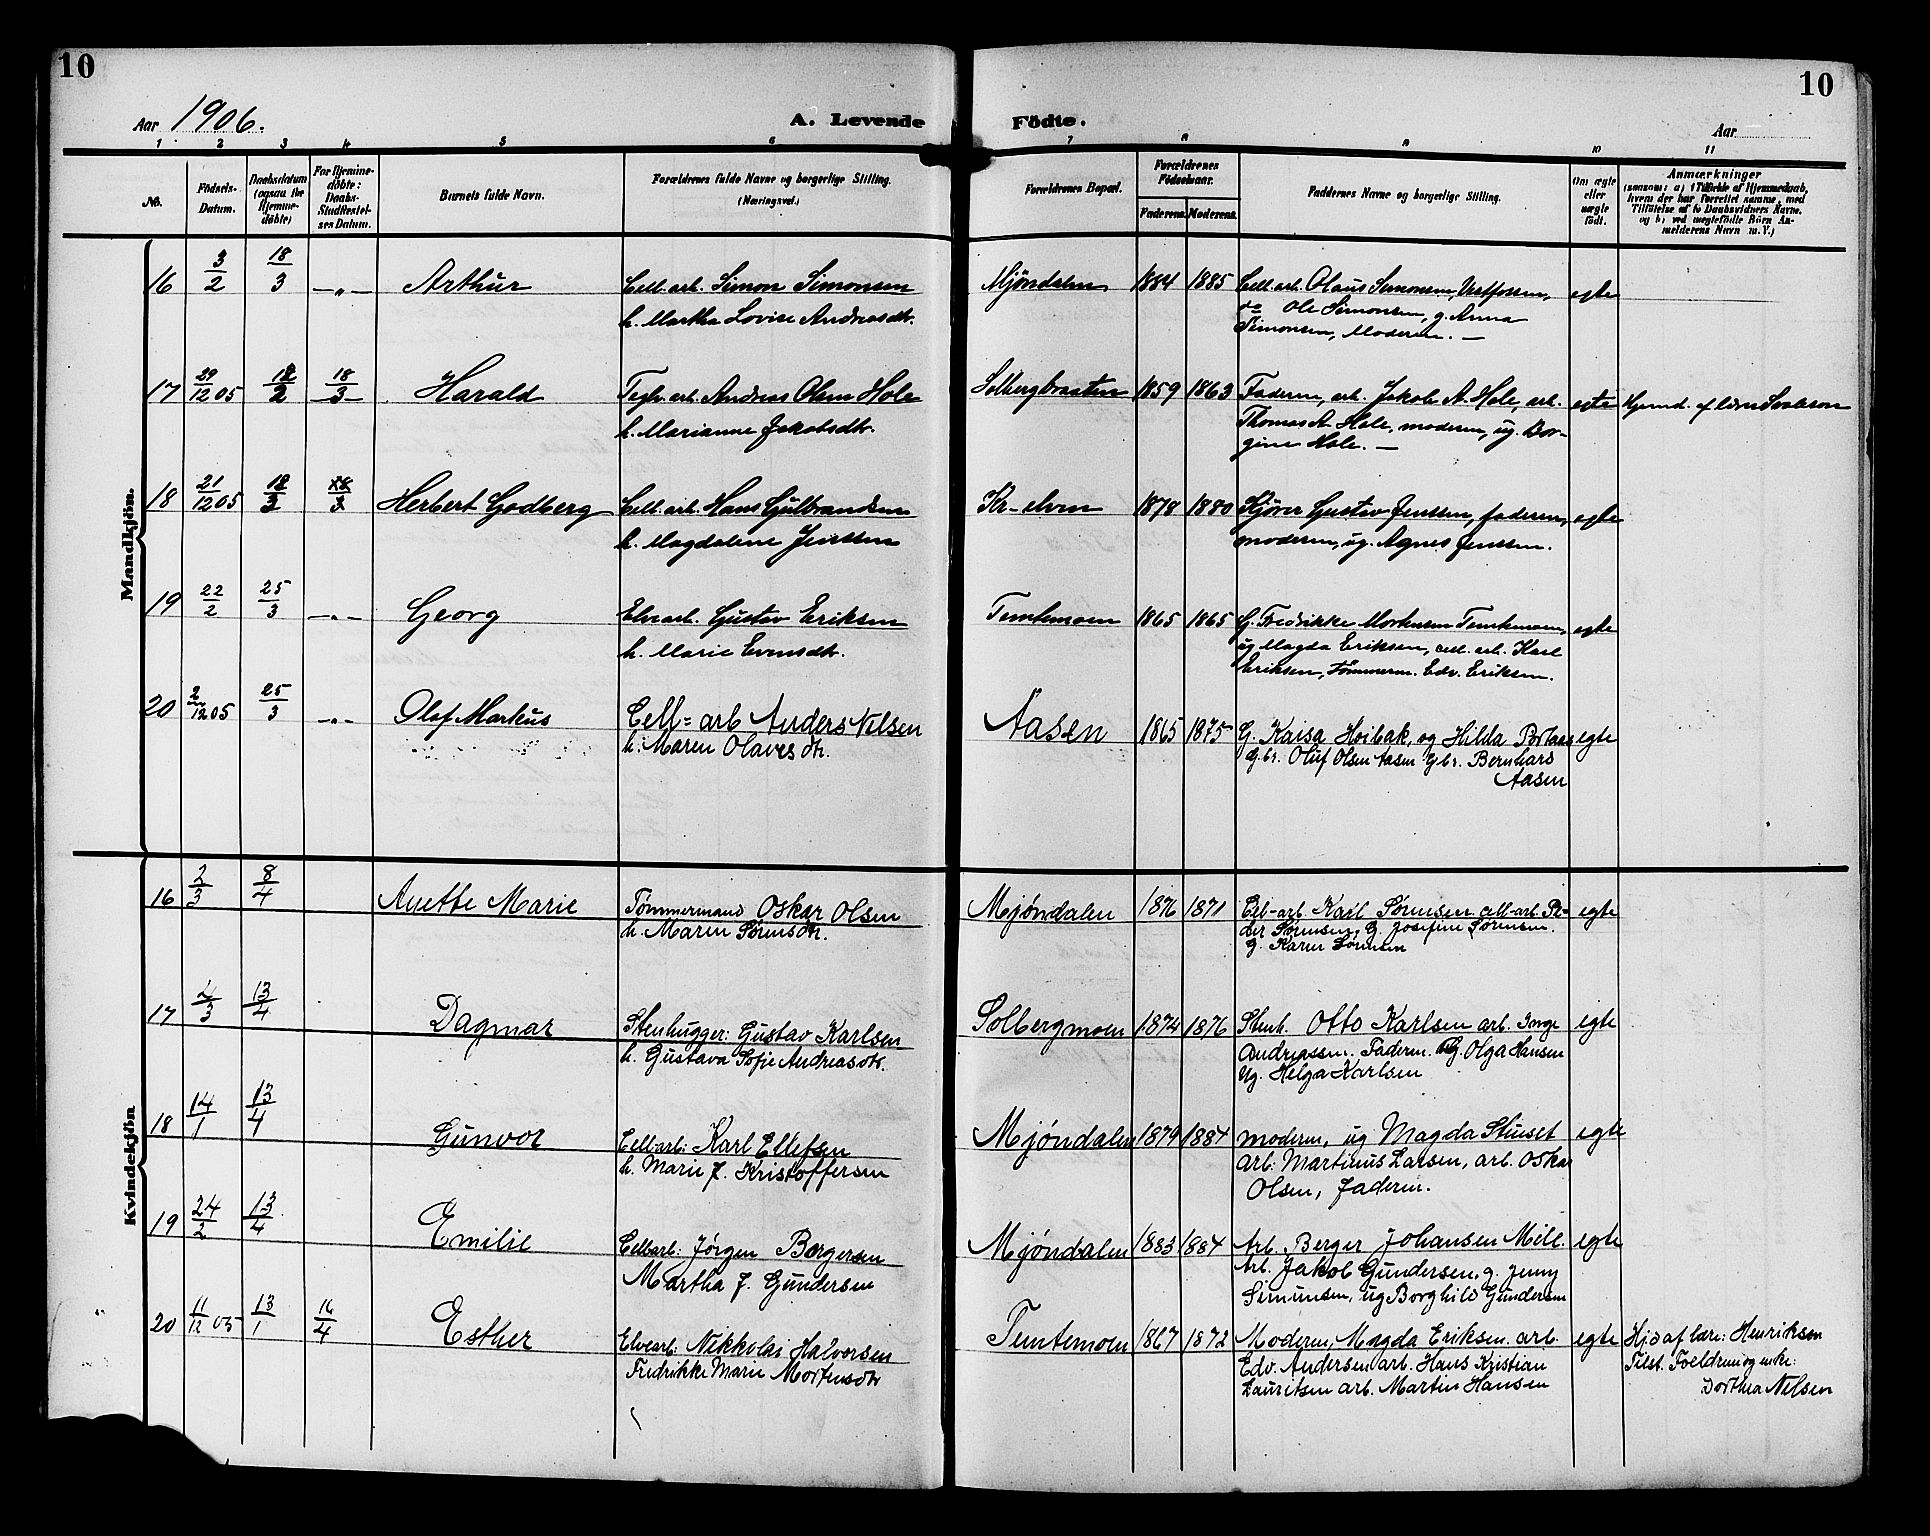 10
10
Aar 1906.
A. Levende Födte.
Aar
1 2 3 4 5 6 7 8 9 10 11
No.
Födsels-Datum.
Daabsdatum (ogsaa for Hjemme-döbte)
For Hjemme-döbte: Daabs-Stadfæstel-ses Datum.
Barnets fulde Navn.
Forældrenes fulde Navne og borgerlige Stilling. (Næringsvei.)
Forældrenes Bopæl.
Forældrenes Födselsaar.
Faderens. Moderens.
Faddernes Navne og borgerlige Stilling.
Om ægte eller uægte födt.
Anmærkninger
Mandkjön.
16 3/2 18/3 —„— Arthur
Cell. arb. Simon Simonsen
h. Martha Lovise Andreasdt.
Mjöndalen 1884 1885
Cell. arb. Olaus Simonsen, Vestfossen,
do Ole Simonsen, g. Anna
Simonsen, Moderen. —
egte
17 29/12 05 18/2 18/3 Harald
Teglv. arb. Andreas Olsen Hole
h. Marianne Jakobsdt.
Solbergbraaten 1859 1863
Faderen, arb. Jakob A. Hole, arb.
Thomas A. Hole, moderen, ug. Bor-
gine Hole. —
egte
18 21/12 05 18/3 18/3 Herbert Godberg
Cell. arb. Hans Gulbrandsen
h. Magdalene Jenssen
Kr-elven 1878 1880
Kjörer Gustav Jenssen, faderen,
moderen, ug. Agnes Jenssen.
egte
19 22/2 25/3 —„— Georg
Elvearb. Gustav Eriksen
h. Marie Evensdt.
Temtemoen 1865 1865
G. Fredrikke Mortensen Temtemoen,
ug Magda Eriksen, cell. arb. Karl
Eriksen, Tömmerm. Edv. Eriksen.
egte
20 2/12 05 25/3 —„— Olaf Markus
Cell= arb Anders Nilsen
h. Maren Olavesdtr.
Aasen 1865 1875
G. Kaisa Hoibak, og Hilda
Gbr. Oluf Olsen Aasen Gbr. Bernhard
Aasen
egte
Kvindekjön
16 2/3 8/4 Anette Marie
Tömmermand Oskar Olsen
h. Maren Sörensdtr.
Mjöndalen 1876 1871
Cel-arb. Karl Sörensen cell-arb. Pe-
der Sörensen, G. Josefine Sörensen.
g. Karen Sörensen
egte
17 4/3 13/4 Dagmar
Stenhugger: Gustav Karlsen
h. Gustava Sofie Andreasdtr.
Solbergmoen 1874 1876
Stenh. Otto Karlsen arb. Inge
Andreassen. Faderen. G. Olga Hansen
Ug. Helga Karlsen
egte
18 14/1 13/4 Gunvor
Cell-arb: Karl Ellefsen
h. Marie J. Kristoffersen
Mjöndalen 1879 1884
moderen, ug Magda Stuset
arb: Martinus Larsen, arb. Oskar
Olsen, faderen.
egte
19 24/2 13/4 Emilie
Cellarb: Jörgen Borgersen
Martha J. Gundersen
Mjöndalen 1883 1884
Arb. Berger Johansen Mile.
Arb. Jakob Gundersen, g. Jenny
Simunsen, ug Borghild Gundersen
egte
20 11/12 05 13/1 16/4 Esther
Elvearb: Nikkolai Halvorsen
Fredrikke Marie Mortensdtr
Temtemoen 1867 1872
Moderen, Magda Eriksen. arb.
Edv. Andersen arb. Hans Kristian
Lauritsen arb. Martin Hansen
egte
Hjd af lære: Henriksen
Tilst. Foeldrene og enke:
Dorthea Nilsen